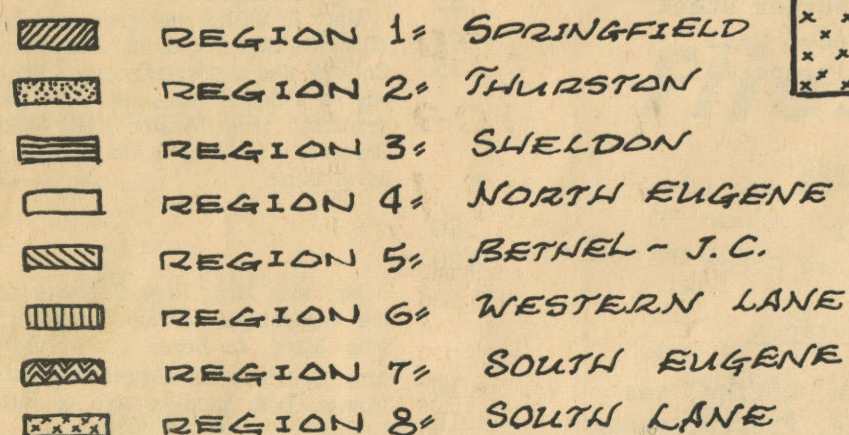 REGION 1: SPRINGFIELD
REGION 2: THURSTON
REGION 3: SHELDON
REGION 4: NORTH EUGENE
REGION 5: BETHEL - J.C.
REGION 6: WESTERN LANE
REGION 7: SOUTH EUGENE
REGION 8: SOUTH LANE